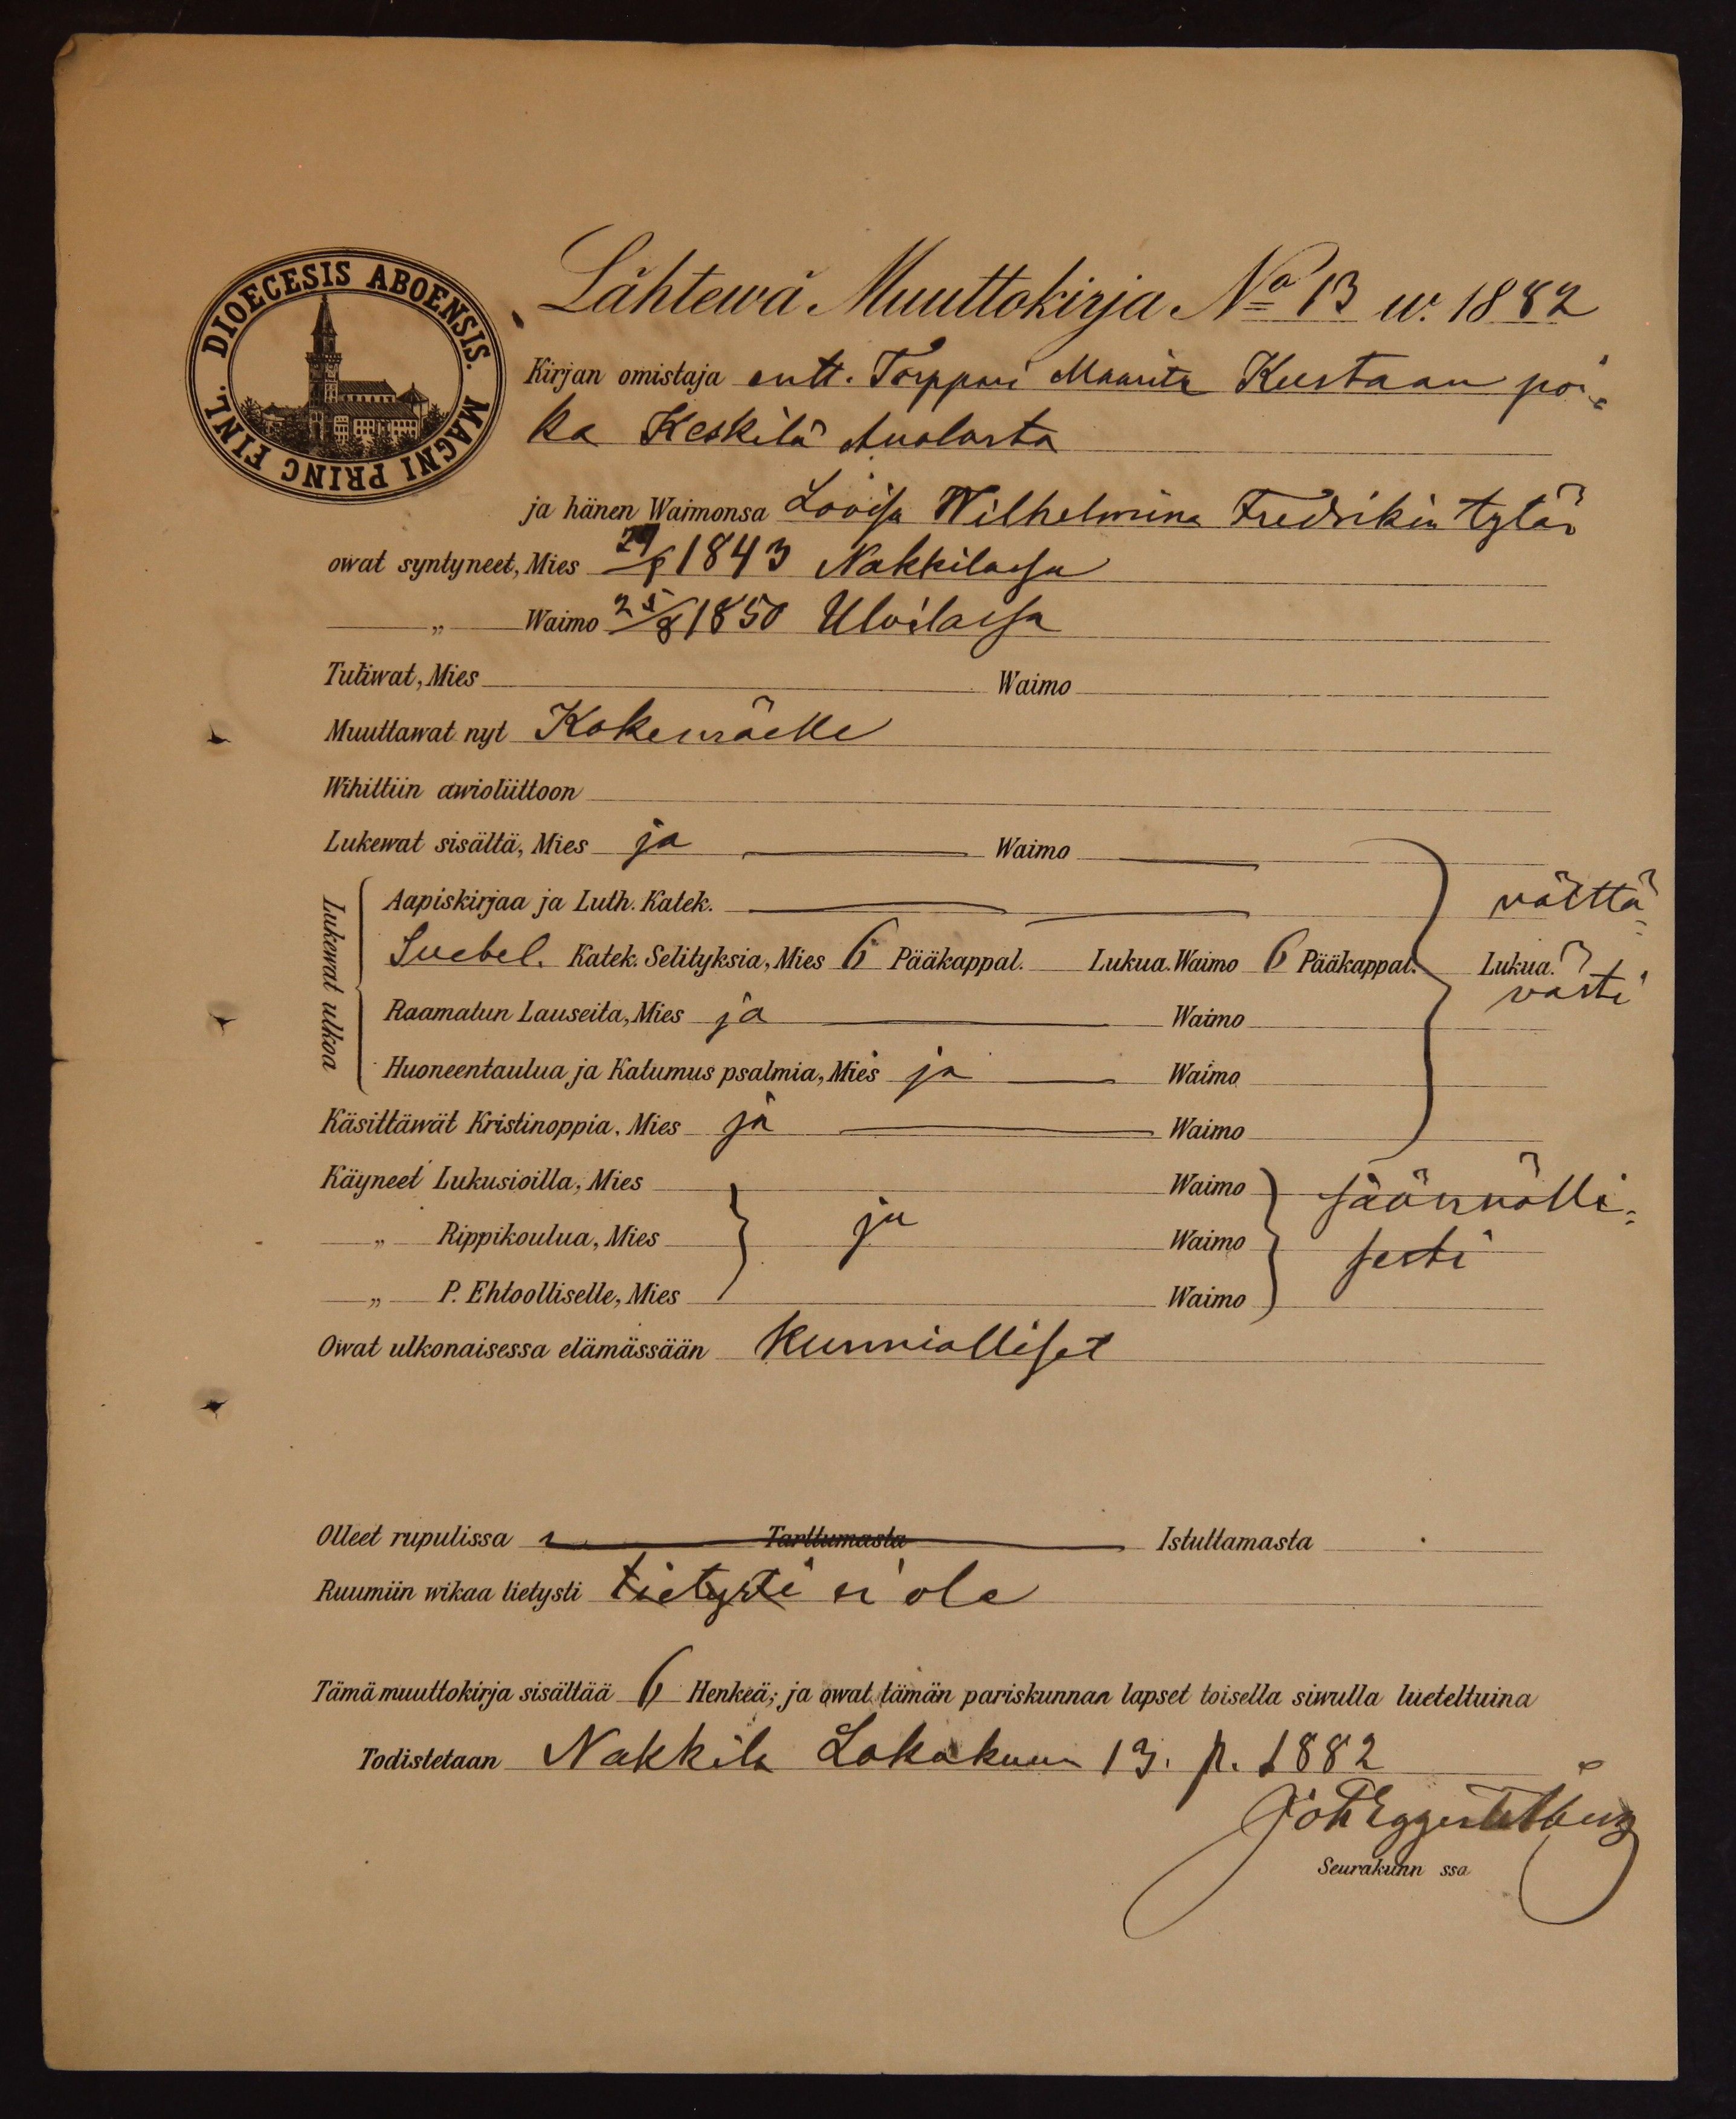 DIOECESIS ABOENSIS. MAGNI PRINC FINL.
Lähtewä Muuttokirja No 13 w. 1882
Kirjan omistaja entt. Torppari Mauritz Kustaan poi=
ka Keskilä Anolasta
ja hänen Waimonsa Lovisa Wilhelmina Fredrikin tytär
owat syntyneet, Mies 1843 Nakkilassa
„ Waimo 25/8 1850 Ulvilassa
Tuliwat, Mies Waimo
Muuttawat nyt Kokemäelle
Wihittiin awioliittoon
Lukewat sisältä, Mies ja Waimo
Lukewat ulkoa
Aapiskirjaa ja Luth. Katek. välttä=
Svebel. Katek. Selityksiä, Mies 6 Pääkappal. Lukua. Waimo 6 Pääkappal. Lukua.
västi
Raamatun Lauseita, Mies ja Waimo
Huoneentaulua ja Katumus psalmia, Mies ja Waimo
Käsittäwät Kristinoppia, Mies ja Waimo
Käyneet Lukusioilla, Mies Waimo säännölli=
„ Rippikoulua, Mies ja Waimo sesti
„ P. Ehtoolliselle, Mies Waimo
Owat ulkonaisessa elämässään Kunnialliset
Olleet rupulissa Tarttumasta Istuttamasta
Ruumiin wikaa tietysti tietysti ei ole
Tämä muuttokirja sisältää 6 Henkeä; ja owat tämän pariskunnan lapset toisella siwulla lueteltuina
Todistetaan Nakkila Lokakuun 13. p. 1882
Seurakunn ssa